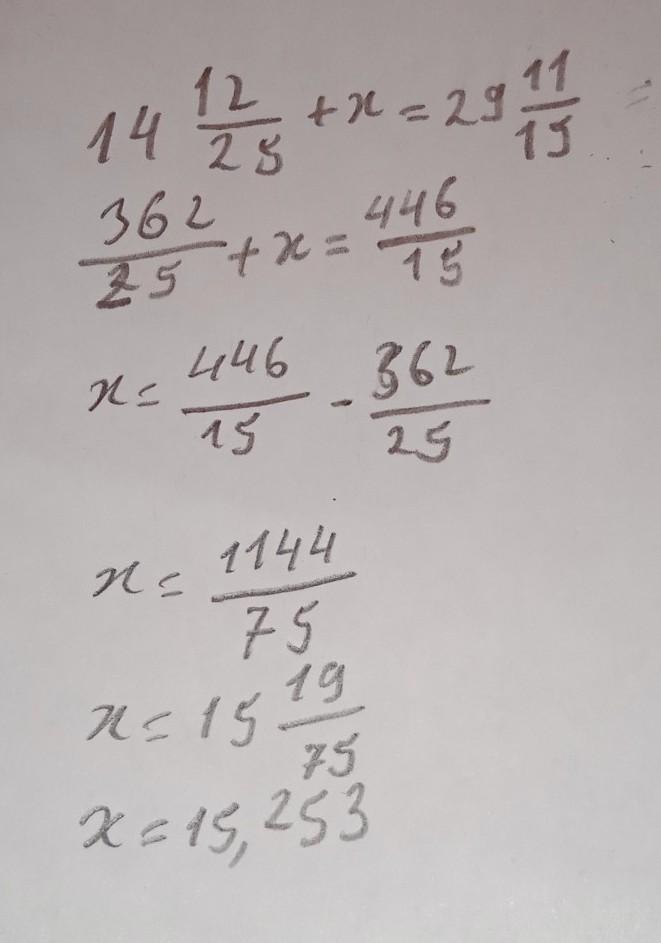 14 12/25 + x = 29 11/15
362/25 + x = 446/15
x = 446/15 - 362/25
x = 1144/75
x = 15 19/75
x = 15,253